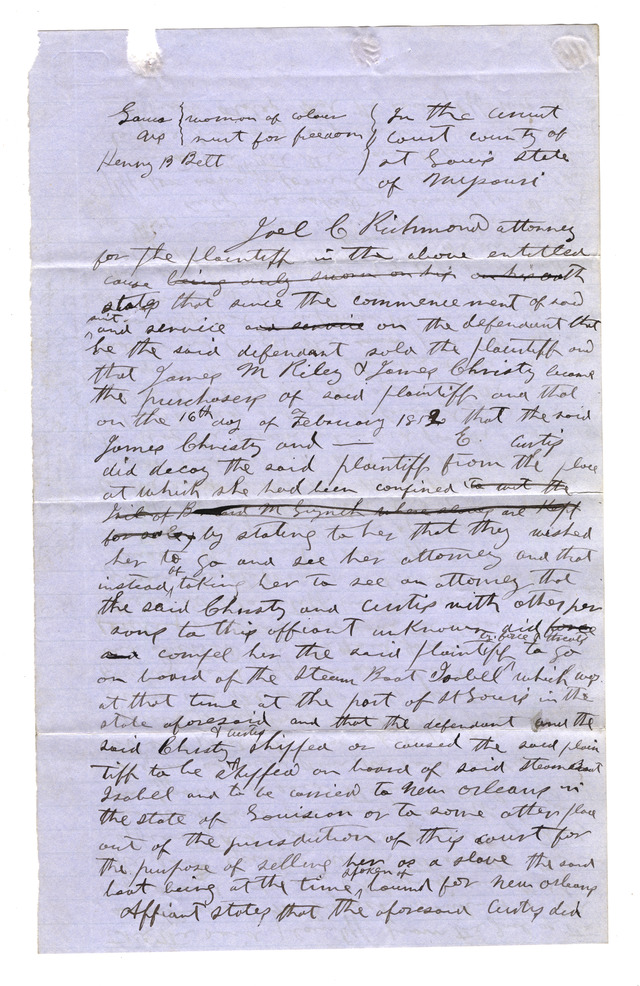 Laura } woman of colour } In the circuit
vs } suit for freedom } court county of
Henry B Belt } St Louis state
of Missouri
Joel C Richmond attorney
for the plaintiff in the above entitled
cause being duly sworn on his on his oath
states that since the commencement of said
suit and service and service on the defendant that
he the said defendant sold the plaintiff and
that James M Riley & James Christy became
the purchasers of said plaintiff and that
on the 16th day of February 1852 that the said
James Christy and — C. Curtis
did decoy the said plaintiff from the place
at which she had been confined to wit the
Jail of B and M Lynch where slaves are kept
for sale by stating to her that they wished
her to go and see her attorney and that
instead of taking her to see an attorney that
the said Christy and Curtis with other per
sons to this affiant unknown did force
and compel her the said plaintiff by force & threats to go
on board of the Steam Boat Isabel which was
at that time at the port of St Louis in the
state aforesaid and that the defendant and the
said Christy & Curtis shipped or caused the said plain
tiff to be shipped on board of said steam boat
Isabel and to be carried to New Orleans in
the state of Louision or to some other place
out of the jurisdiction of this court for
the purpose of selling her as a slave the said
boat being at the time spoken of bound for New Orleans
Affiant states that the aforesaid Curtis did